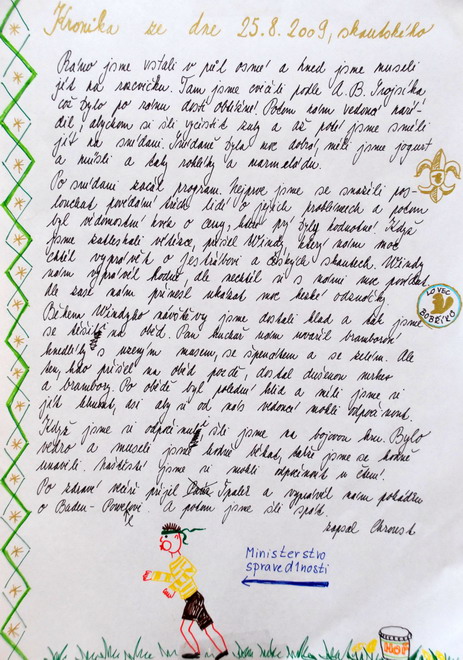 Kronika ze dne 25.8.2009, skautského
Ráno jsme vstali v půl osmé a hned jsme museli
jít na rozcvičku. Tam jsme cvičili podle A. B. Svojsíka
což bylo po ránu dosti obtížné! Potom nám vedoucí naří-
dil, abychom si šli vyčistit zuby a až poté jsme směli
jít na snídani. Snídaně byla moc dobrá, měli jsme jogurt
a müsli a taky rohlíky a marmeládu.
Po snídani začal program. Nejprve jsme se snažili pos-
louchat povídání lidí o jejich problémech a potom
byl vědomostní kvíz o ceny, které prý byly hodnotné. Když
jsme přišel Windy, který nám moc
chtěl vyprávět o Jestřábovi a českých skautech. Windy
nám vyprávěl hodně, ale nechtěl si s námi moc povídat
ale zase nám přinesl ukázat moc hezké odznáčky.
Během Windyho návštěvy jsme dostali hlad a tak jsme
se těšili na oběd. Pan kuchař nám uvařil bramborové
knedlíky s uzeným masem, se špenátem a se zelím. Ale
ten, kdo přišel na oběd pozdě, dostal dušenou mrkev
a brambory. Po obědě byl polední klid a měli jsme si
jít lehnout, asi aby si od nás vedoucí mohli odpočinout.
Když jsme si odpočinuli šli jsme na bojovou hru. Bylo
vedro a museli jsme hodně běhat, takže jsme se hodně
unavili. Naštěstí jsme si mohli odpočinout ve stínu.
Po zdravé večeři přijel Špalek a vyprávěl nám pohádku
o Baden-Powellovi. A potom jsme šli spát.
zapsal Chroust
LOVEC
BOBŘÍKŮ
Ministerstvo
spravedlnosti
HOP